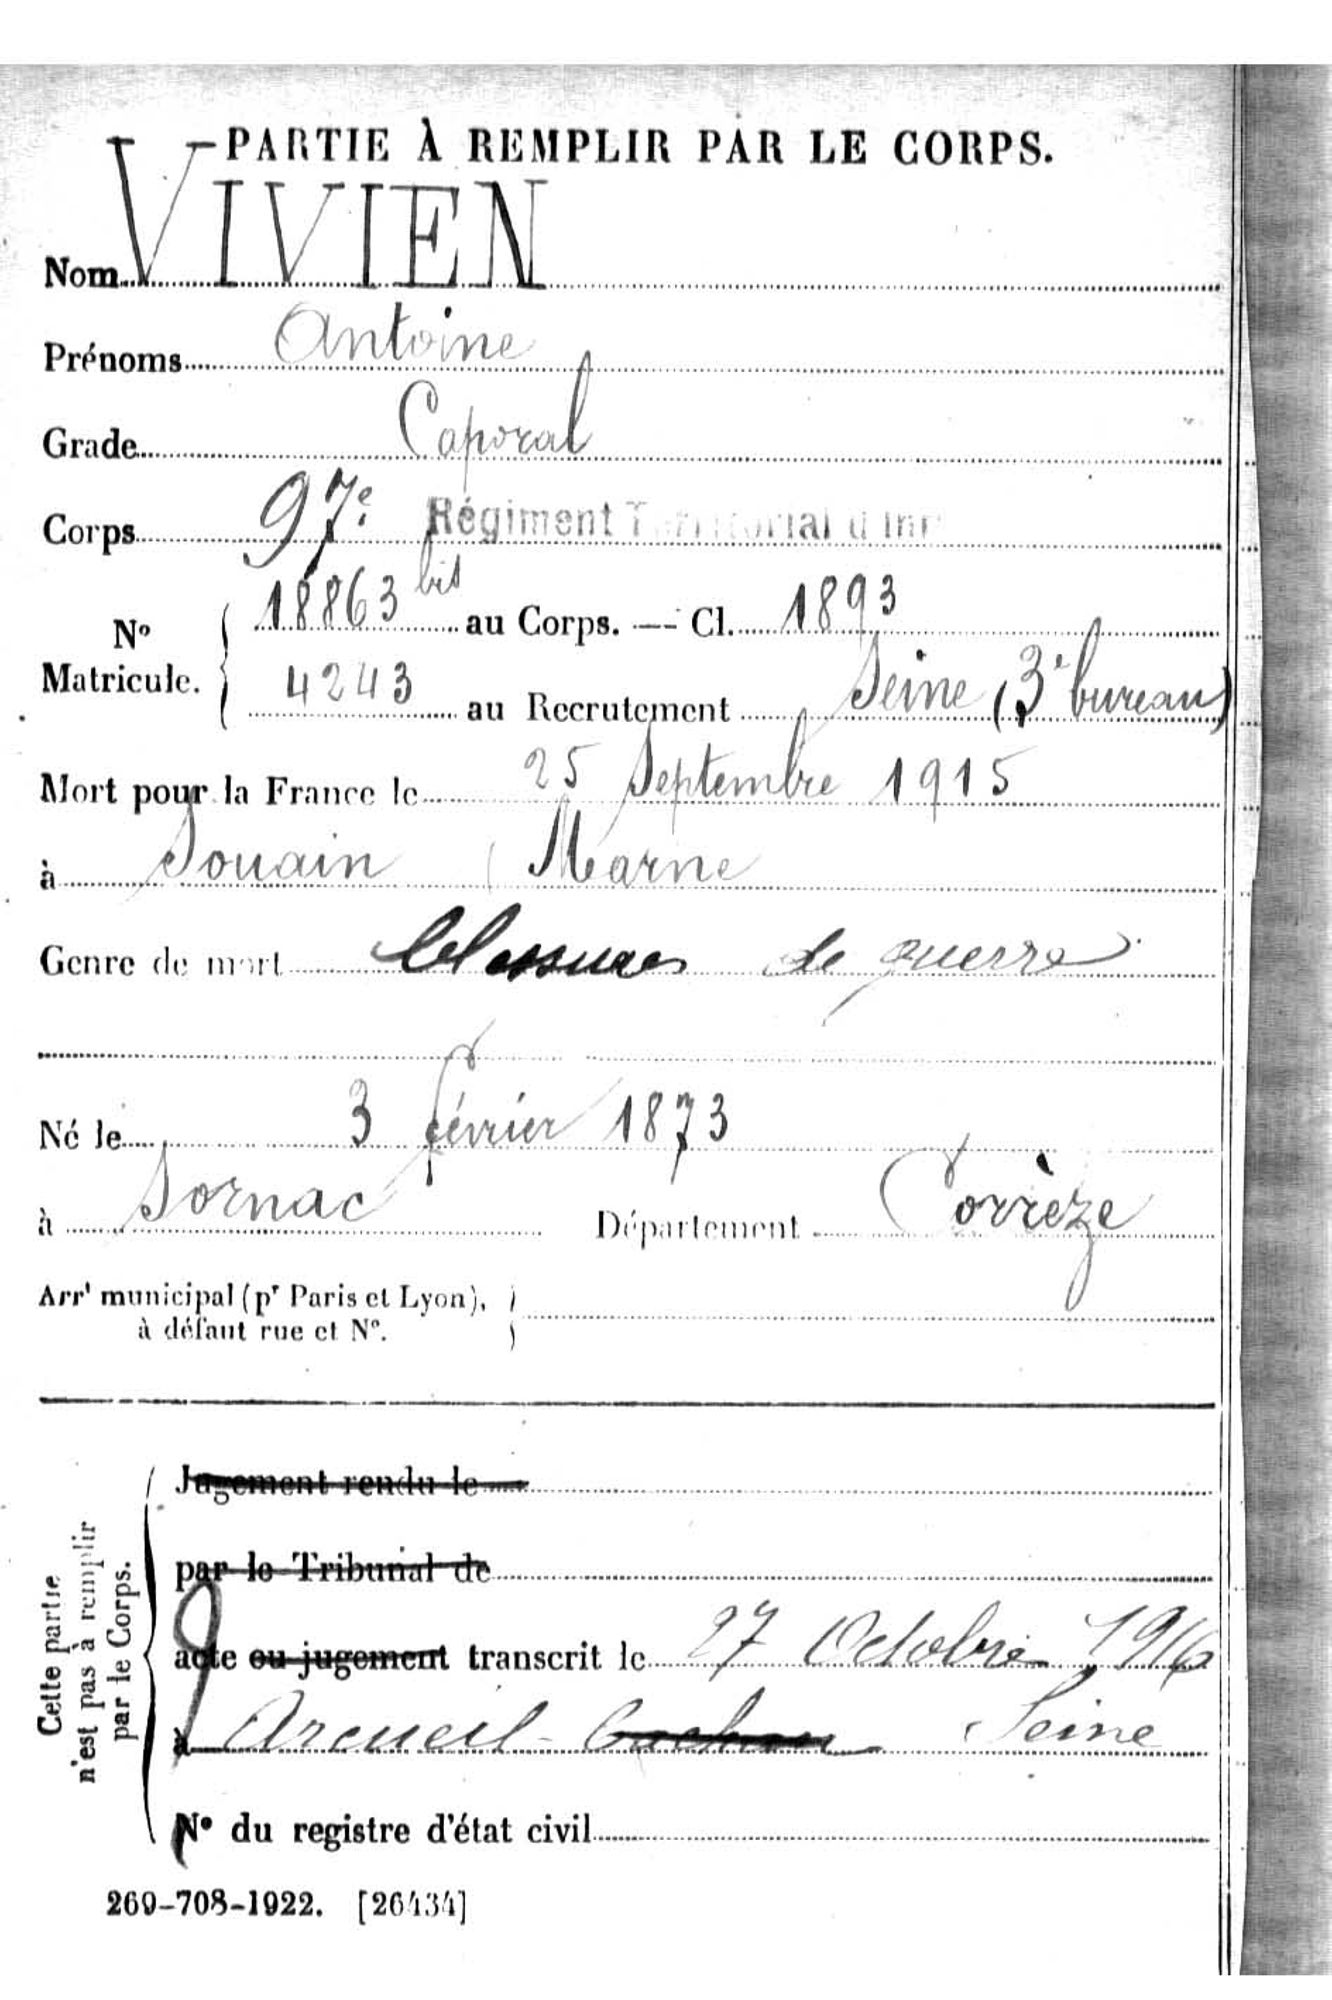 PARTIE À REMPLIR PAR LE CORPS.
Nom VIVIEN
Prénoms Antoine
Grade Caporal
Corps 97e Régiment Territorial d'Inf
N° Matricule. 18863 bis au Corps. — Cl. 1893
4243 au Recrutement Seine (3e bureau)
Mort pour la France le 25 Septembre 1915
à Souain (Marne
Genre de mort blessures de guerre
Né le 3 février 1873
à Sornac Département Corrèze
Arrt municipal (pr Paris et Lyon),
à défaut rue et N°.
Cette partie
n'est pas à remplir
par le Corps.
Jugement rendu le
par le Tribunal de
acte ou jugement transcrit le 27 Octobre 1916
à Arcueil-Cachan Seine
N° du registre d'état civil
269-708-1922. [26434]